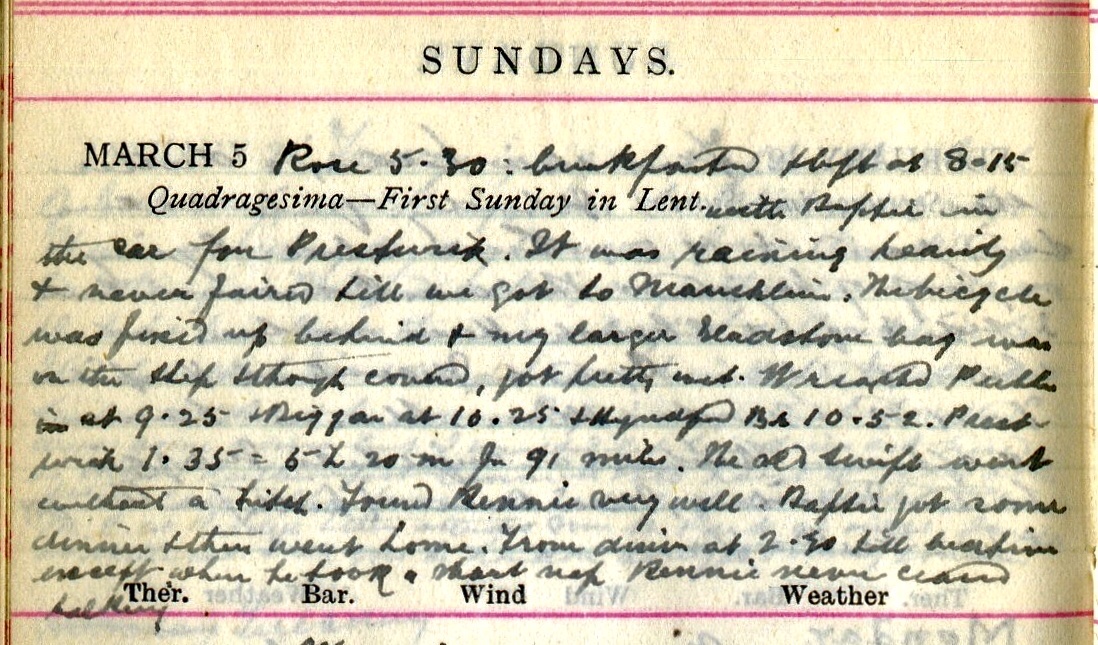 SUNDAYS.
MARCH 5 Rose 5.30: breakfasted & left at 8-15
Quadragesima—First Sunday in Lent. with Baptie in
the car for Prestwick. It was raining heavily
& never faired till we got to Mauchline. The bicycle
was fixed up behind & my larger Gladstone bag was
on the step & though covered, got pretty wet. We reached Peebles
in at 9.25 & Biggar at 10.25 & Hyndford Br 10.52. Prest-
wick 1.35 = 5 h 20 m for 91 miles. The old Swift went
without a hitch. Found Rennie very well. Baptie got some
dinner & then went home. From dinner at 2.30 till bedtime
except when he took a short nap Rennie never ceased
Ther. Bar. Wind Weather
talking